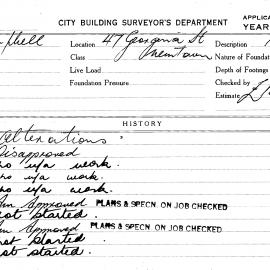 CITY BUILDING SURVEYOR'S DEPARTMENT
APPLICA
YEAR
Location 47 Georgina St
Newtown
Description
Class
Nature of Foundat
Live Load
Depth of Footings
Foundation Pressure
Checked
Estimate
HISTORY
Alterations
Disapproved
no u/a work.
no u/a work.
no u/a work.
Approved PLANS & SPECN. ON JOB CHECKED
not started.
Approved PLANS & SPECN. ON JOB CHECKED
not started.
not started.